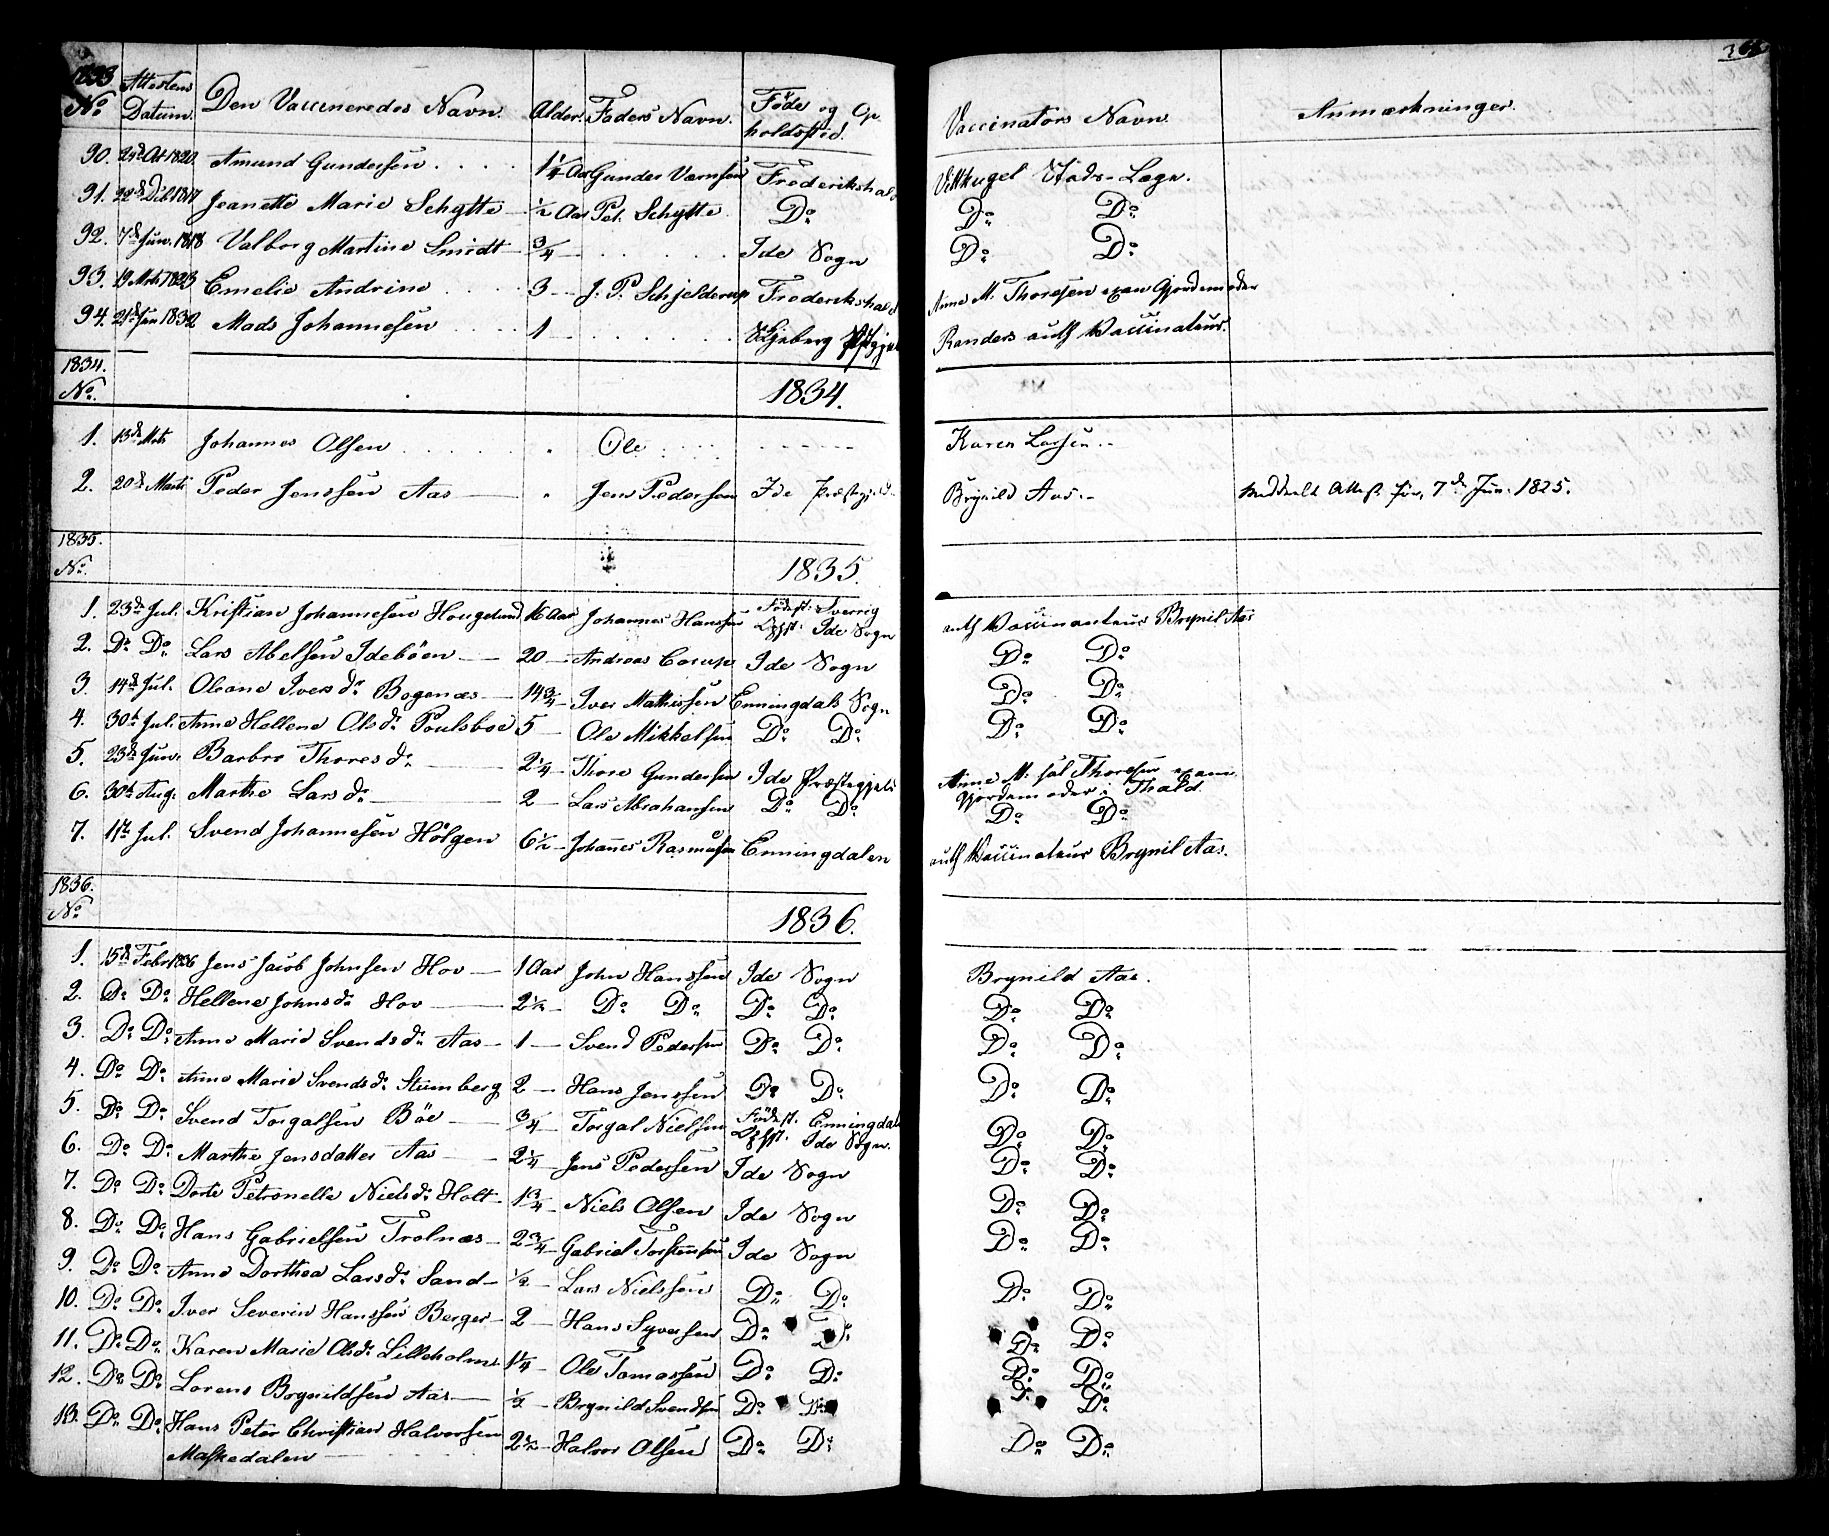 1833 Attestens Den Vaccineredes Navn. Alder. Faders Navn. Føde og Op- Vaccinators Navn. Anmærkninger.
No Datum. holdssted.
90. 1820 Amund Gundersen . . . . 1 1/4 Aar Gunder Frederikshald Stads-Læge.
91. 22de Deb 1817 Jeanette Marie Schytte — 1/2 Aar Pet. Schytte. Do Do Do
92. 7de Jun. 1818 Valborg Martine Smidt — 3/4 — . . . . . . Ide Sogn Do Do
93. 19 Mrts 1823 Emelie Andrine . . . . 3 — J. P. Schjelderup Frederikshald Anna M. Thoresen exam Gjordemoder
94. 21de Jan 1832 Mads Johannesen . . . . 1 — . . . . . . Skjeberg Randers auth Vaccinateur.
1834.
No. 1834.
1. 13de Mrts Johannes Olsen . . . . . „ Ole . . . . - - - - - Karen Larsen. -
2. 20de Marts Peder Jenssen Aas — „ Jens Pedersen Ide Præstegjeld Brynild Aas. - meddeelt Attest 7de Jun. 1825.
1835.
No. 1835.
1. 23de Jul. Kristian Johannesen Hougelund 16 Aar Johannes Hanssen Fødest: Sverrig auth Vaccinanteur Brynil Aas
Ophst: Ide Sogn
2. Do Do Lars Abelsen Idebøen — 20 — Andreas Ide Sogn Do Do
3. 14de Jul. Oleane Ivers dr Bogenæs — 14 3/4 — Iver Mathissen Enningdals Sogn Do Do
4. 30te Jul. Anne Hellene Ols dr Poulsboe 5 — Ole Mikkelsen Do Do Do Do
5. 23de Jun. Barbro Thores dr — 2 1/4 — Thore Gundersen Ide Præstegjeld Anne M. sal Thoresen exam.
Gjordemoder i Fhald.
6. 30te Aug. Marthe Lars dr — 2 — Lars Abrahansen Do Do Do Do
7. 11te Jul. Svend Johannesen Hølgen 6 1/2 — Johannes Rasmusen Enningdalen auth Vaccinateur Brynil Aas.
1836.
No 1836.
1. 15de Febr 1836 Jens Jacob Johnsen Hov — 1 Aar John Hanssen Ide Sogn Brynild Aas.
2. Do Do Hellene Johns dr Hov — 2 1/2 — Do Do Do Do Do Do
3. Do Do Anne Marie Svends dr Aas — 1 — Svend Pedersen Do Do Do Do
4. Do Do Anne Marie Svends dr Stumberg 2 — Hans Jenssen Do Do Do Do
5. Do Do Svend Torgalsen Bøe — 3/4 — Torgal Nielsen Fødest. Enningdal Do Do
Ophst. Ide Sogn.
6. Do Do Marthe Jensdatter Aas — 2 1/4 — Jens Pedersen Ide Sogn Do Do
7. Do Do Dorte Petronelle Niels dr Holt — 1 3/4 — Niels Olsen Ide Sogn Do Do
8. Do Do Hans Gabrielsen Trolnæs — 2 3/4 — Gabriel Torstensen Ide Sogn Do Do
9. Do Do Anne Dorthea Lars dr Sand — 1/2 — Lars Nielssen Do Do Do Do
10. Do Do Iver Severin Hanssen Berger — 2 — Hans Syversen Do Do Do Do
11. Do Do Karen Marie Ols dr Lilleholm 1 1/4 — Ole Tomassen Do Do Do Do
12. Do Do Lorens Brynildsen Aas — 1/2 — Brynild Svendsen Do Do Do Do
13. Do Do Hans Peter Christian Halvorsen 2 1/2 — Halvor Olsen Do Do Do Do
Maskedalen —